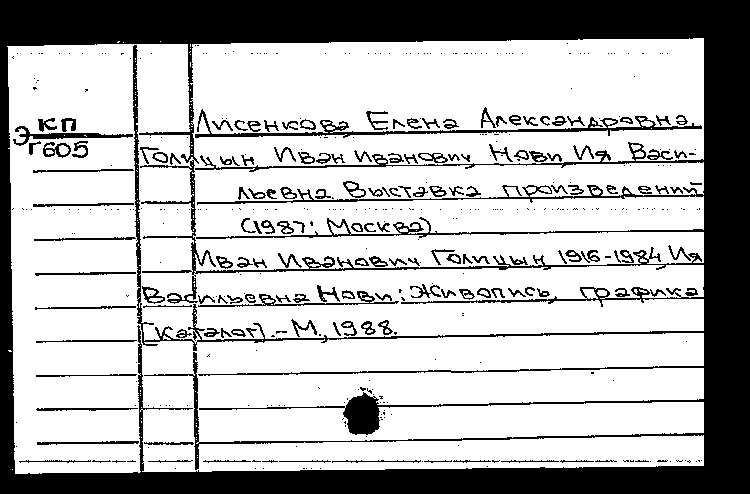 Э КП Г605
Лисенкова Елена Александровна.
Голицын, Иван Иванович, Нови, Ия Васи-
льевна. Выставка произведений
(1987; Москва).
Иван Иванович Голицын, 1916-1984, Ия
Васильевна Нови: Живопись, графика
[каталог].-М., 1988.